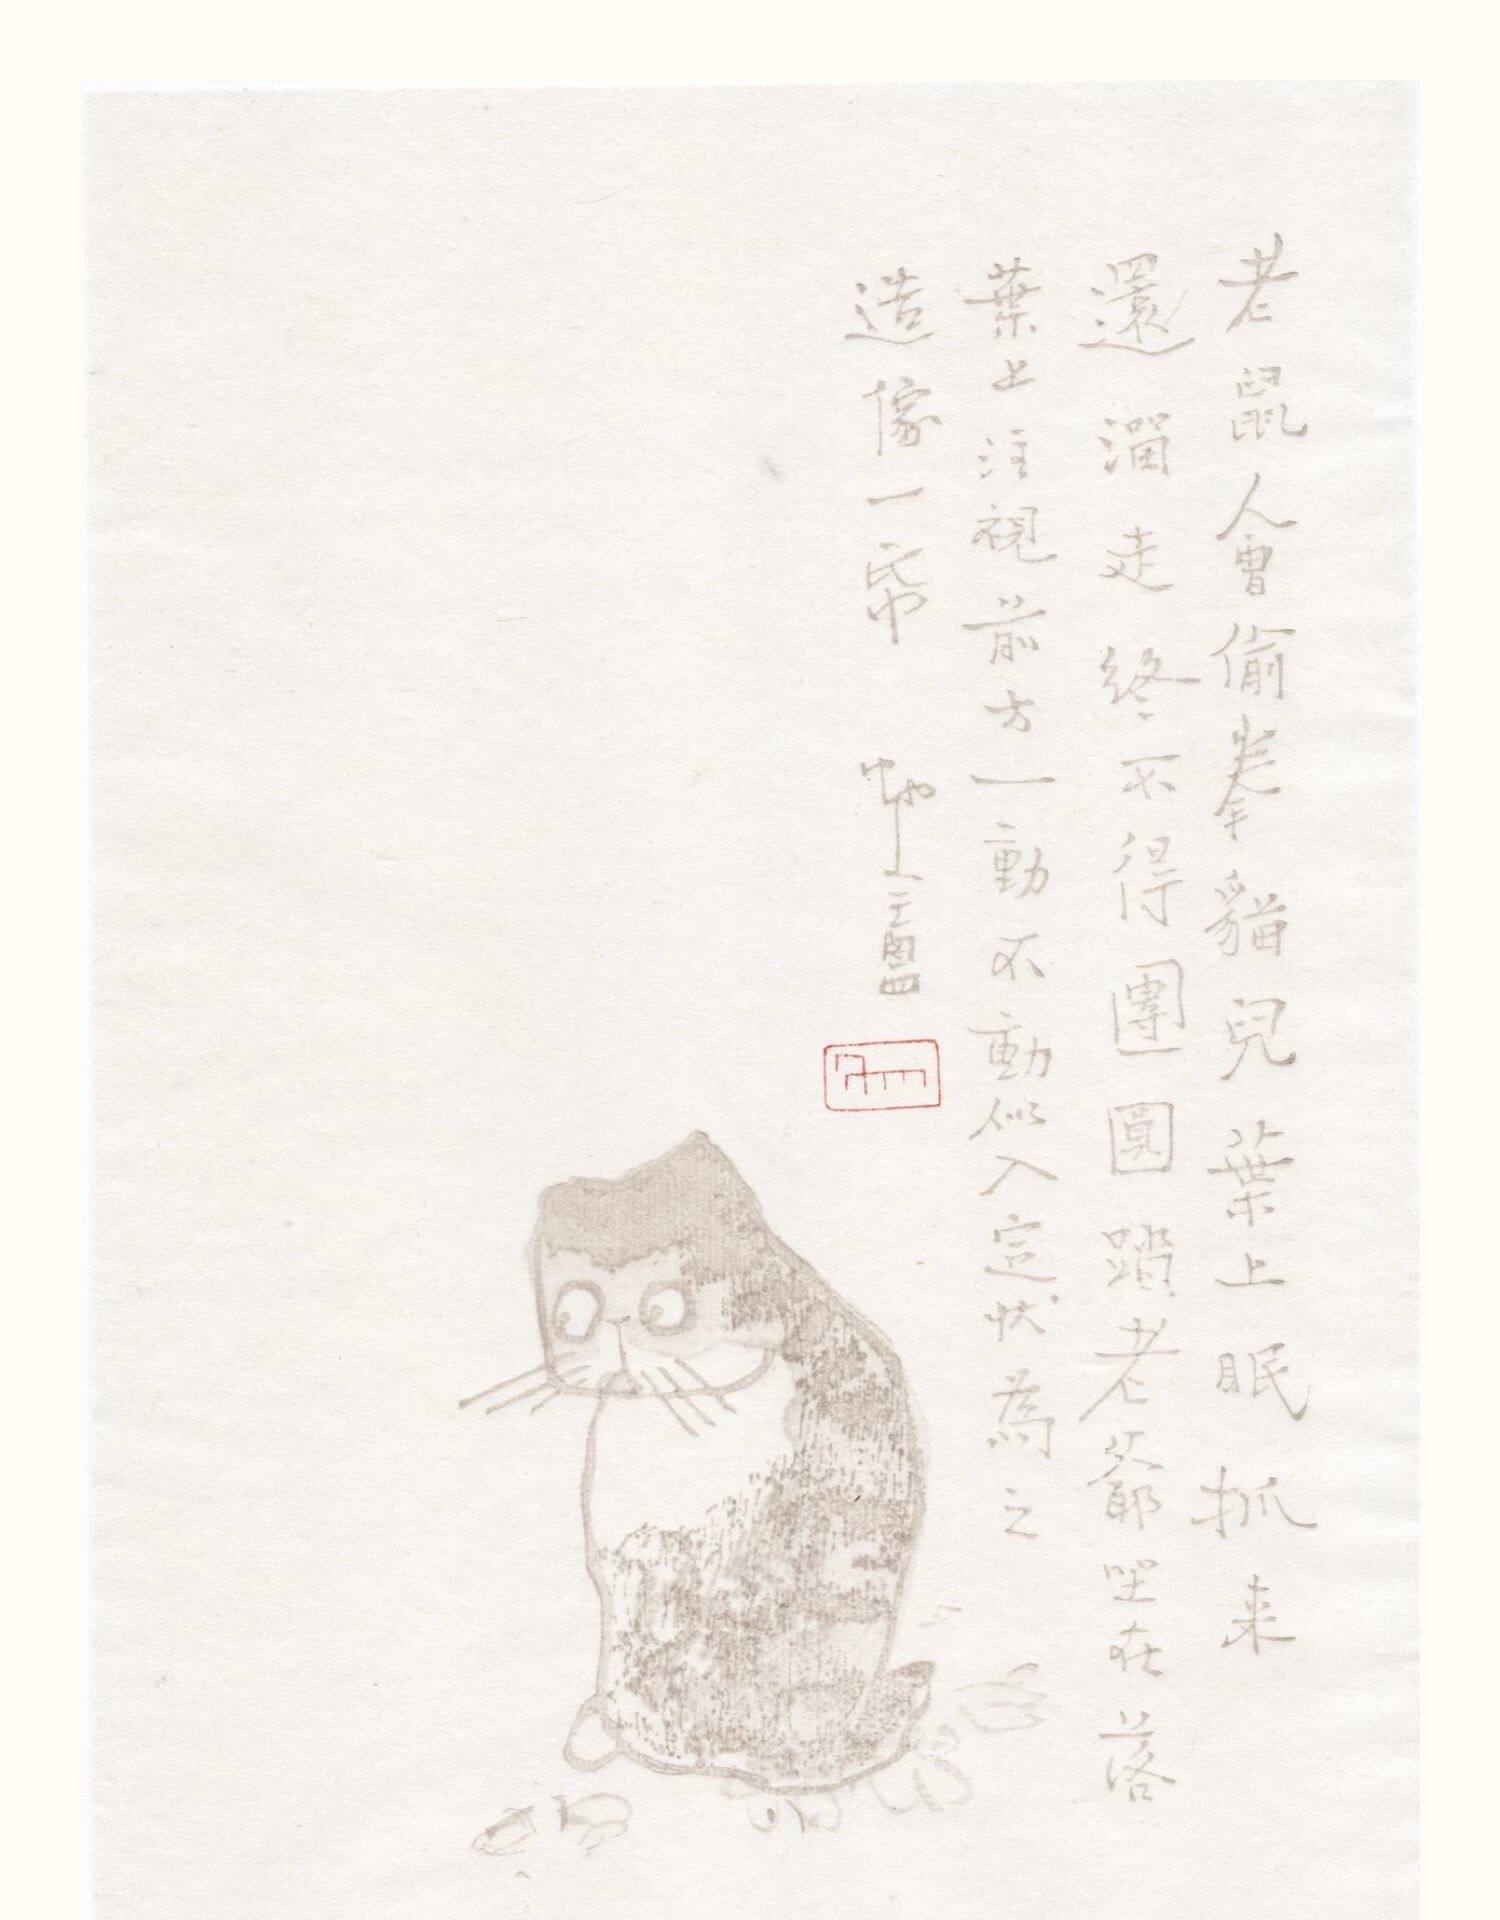 老鼠人會偷拳貓兒葉上眠抓来
還溜走終不得團圓蹭老爺坐在落
葉上注視前方一動不動似入定狀為之
造像一帋